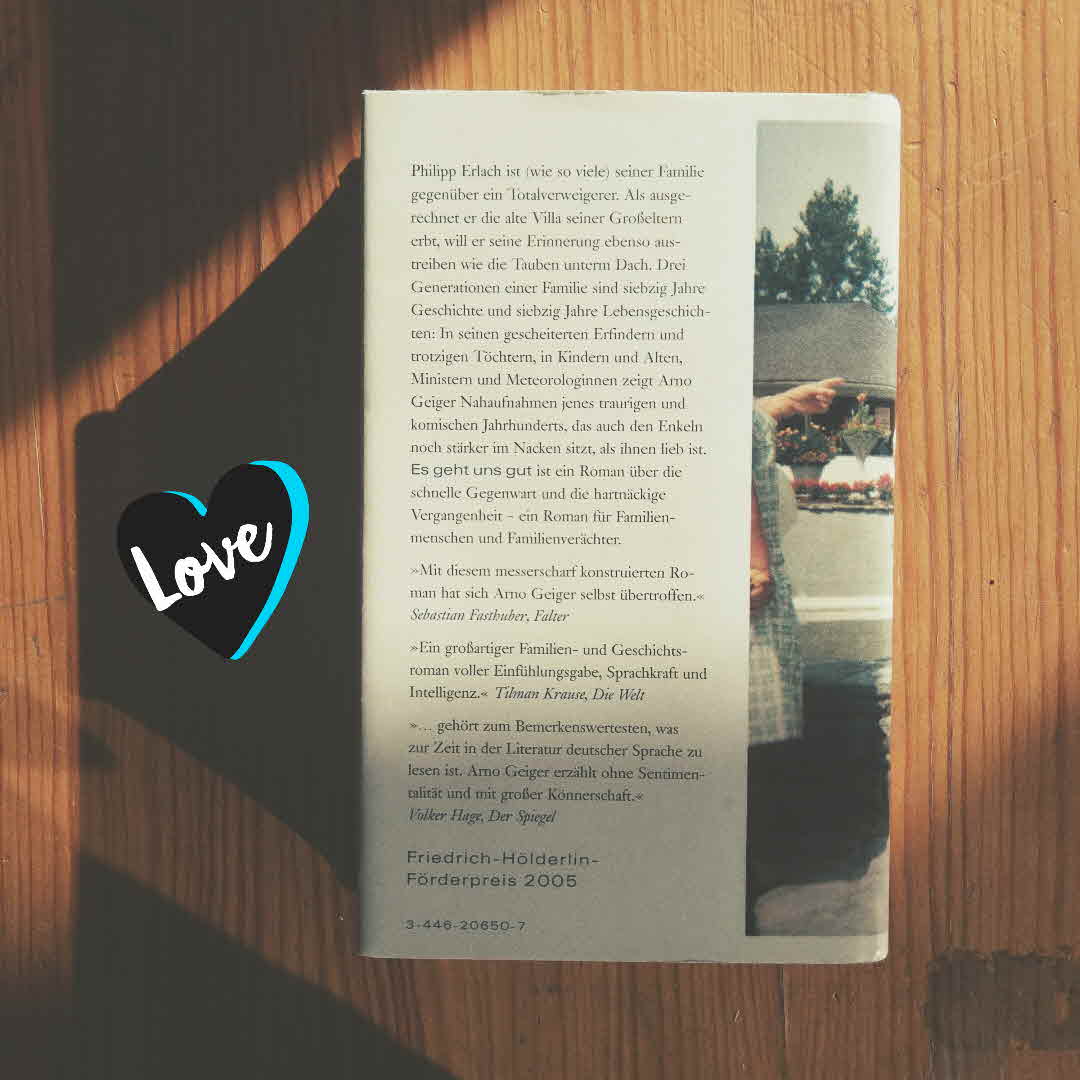 Philipp Erlach ist (wie so viele) seiner Familie
gegenüber ein Totalverweigerer. Als ausge-
rechnet er die alte Villa seiner Großeltern
erbt, will er seine Erinnerung ebenso aus-
treiben wie die Tauben unterm Dach. Drei
Generationen einer Familie sind siebzig Jahre
Geschichte und siebzig Jahre Lebensgeschich-
ten: In seinen gescheiterten Erfindern und
trotzigen Töchtern, in Kindern und Alten,
Ministern und Meteorologinnen zeigt Arno
Geiger Nahaufnahmen jenes traurigen und
komischen Jahrhunderts, das auch den Enkeln
noch stärker im Nacken sitzt, als ihnen lieb ist.
Es geht uns gut ist ein Roman über die
schnelle Gegenwart und die hartnäckige
Vergangenheit – ein Roman für Familien-
menschen und Familienverächter.
»Mit diesem messerscharf konstruierten Ro-
man hat sich Arno Geiger selbst übertroffen.«
Sebastian Fasthuber, Falter
»Ein großartiger Familien- und Geschichts-
roman voller Einfühlungsgabe, Sprachkraft und
Intelligenz.« Tilman Krause, Die Welt
»… gehört zum Bemerkenswertesten, was
zur Zeit in der Literatur deutscher Sprache zu
lesen ist. Arno Geiger erzählt ohne Sentimen-
talität und mit großer Könnerschaft.«
Volker Hage, Der Spiegel
Friedrich-Hölderlin-
Förderpreis 2005
3-446-20650-7
Love